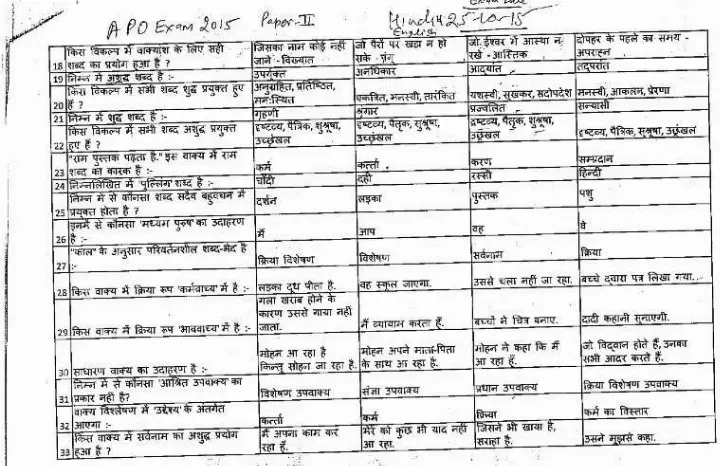 Exam Date
APO Exam 2015 Paper-II Hindi & English 25-10-15
किस विकल्प में वाक्यांश के लिए सही जिसका नाम कोई नहीं जो पैरों पर खड़ा न हो जो ईश्वर में आस्था न दोपहर के पहले का समय -
18 शब्द का प्रयोग हुआ है ? जाने - विख्यात सके - पंगु रखे - आस्तिक अपराह्न
19 निम्न में अशुद्ध शब्द है :- उपर्युक्त अनधिकार
किस विकल्प में सभी शब्द शुद्ध प्रयुक्त हुए अनुग्रहित, प्रतिष्ठित,
20 हैं ? मन:स्थित एकत्रित, मनस्वी, तारंकित यशस्वी, सुखकर, सदोपदेश मनस्वी, आकलन, प्रेरणा
21 निम्न में शुद्ध शब्द है :- गृहणी श्रृंगार प्रज्वलित सन्यासी
किस विकल्प में सभी शब्द अशुद्ध प्रयुक्त दृष्टव्य, पैत्रिक, शुश्रूषा, दृष्टव्य, पैतृक, सुश्रूषा, द्रष्टव्य, पैतृक, शुश्रूषा,
22 हुए हैं ? उच्छृंखल उच्छृंखल उछृंखल दृष्टव्य, पैत्रिक, सश्रूषा, उछृंखल
"राम पुस्तक पढ़ता है." इस वाक्य में राम
23 शब्द का कारक है :- कर्म कर्त्ता करण सम्प्रदान
24 निम्नलिखित में 'पुल्लिंग' शब्द है :- चाँदी दही रस्सी हिन्दी
निम्न में से कौनसा शब्द सदैव बहुवचन में
25 प्रयुक्त होता है ? दर्शन लड़का पुस्तक पशु
इनमें से कौनसा 'मध्यम पुरुष' का उदाहरण
26 है :- मैं आप वह वे
"काल" के अनुसार परिवर्तनशील शब्द-भेद है
27 :- क्रिया विशेषण विशेषण सर्वनाम क्रिया
28 किस वाक्य में क्रिया रूप 'कर्मवाच्य' में है :- लड़का दूध पीता है. वह स्कूल जाएगा. उससे चला नहीं जा रहा. बच्चे द्वारा पत्र लिखा गया.
गला खराब होने के
कारण उससे गाया नहीं
29 किस वाक्य में क्रिया रूप 'भाववाच्य' में है :- जाता. मैं व्यायाम करता हूँ. बच्चों ने चित्र बनाए. दादी कहानी सुनाएगी.
मोहन आ रहा है मोहन अपने माता-पिता मोहन ने कहा कि मैं जो विद्वान होते हैं, उनका
30 साधारण वाक्य का उदाहरण है :- किन्तु सोहन जा रहा है. के साथ आ रहा है. आ रहा हूँ. सभी आदर करते हैं.
निम्न में से कौनसा 'आश्रित उपवाक्य' का
31 प्रकार नहीं है? विशेषण उपवाक्य संज्ञा उपवाक्य प्रधान उपवाक्य क्रिया विशेषण उपवाक्य
वाक्य विश्लेषण में 'उद्देश्य' के अंतर्गत
32 आएगा :- कर्त्ता कर्म क्रिया कर्म का विस्तार
किस वाक्य में सर्वनाम का अशुद्ध प्रयोग मैं अपना काम कर मेरे को कुछ भी याद नहीं जिसने भी खाया है,
33 हुआ है ? रहा हूँ. आ रहा. सराहा है. उसने मुझसे कहा.